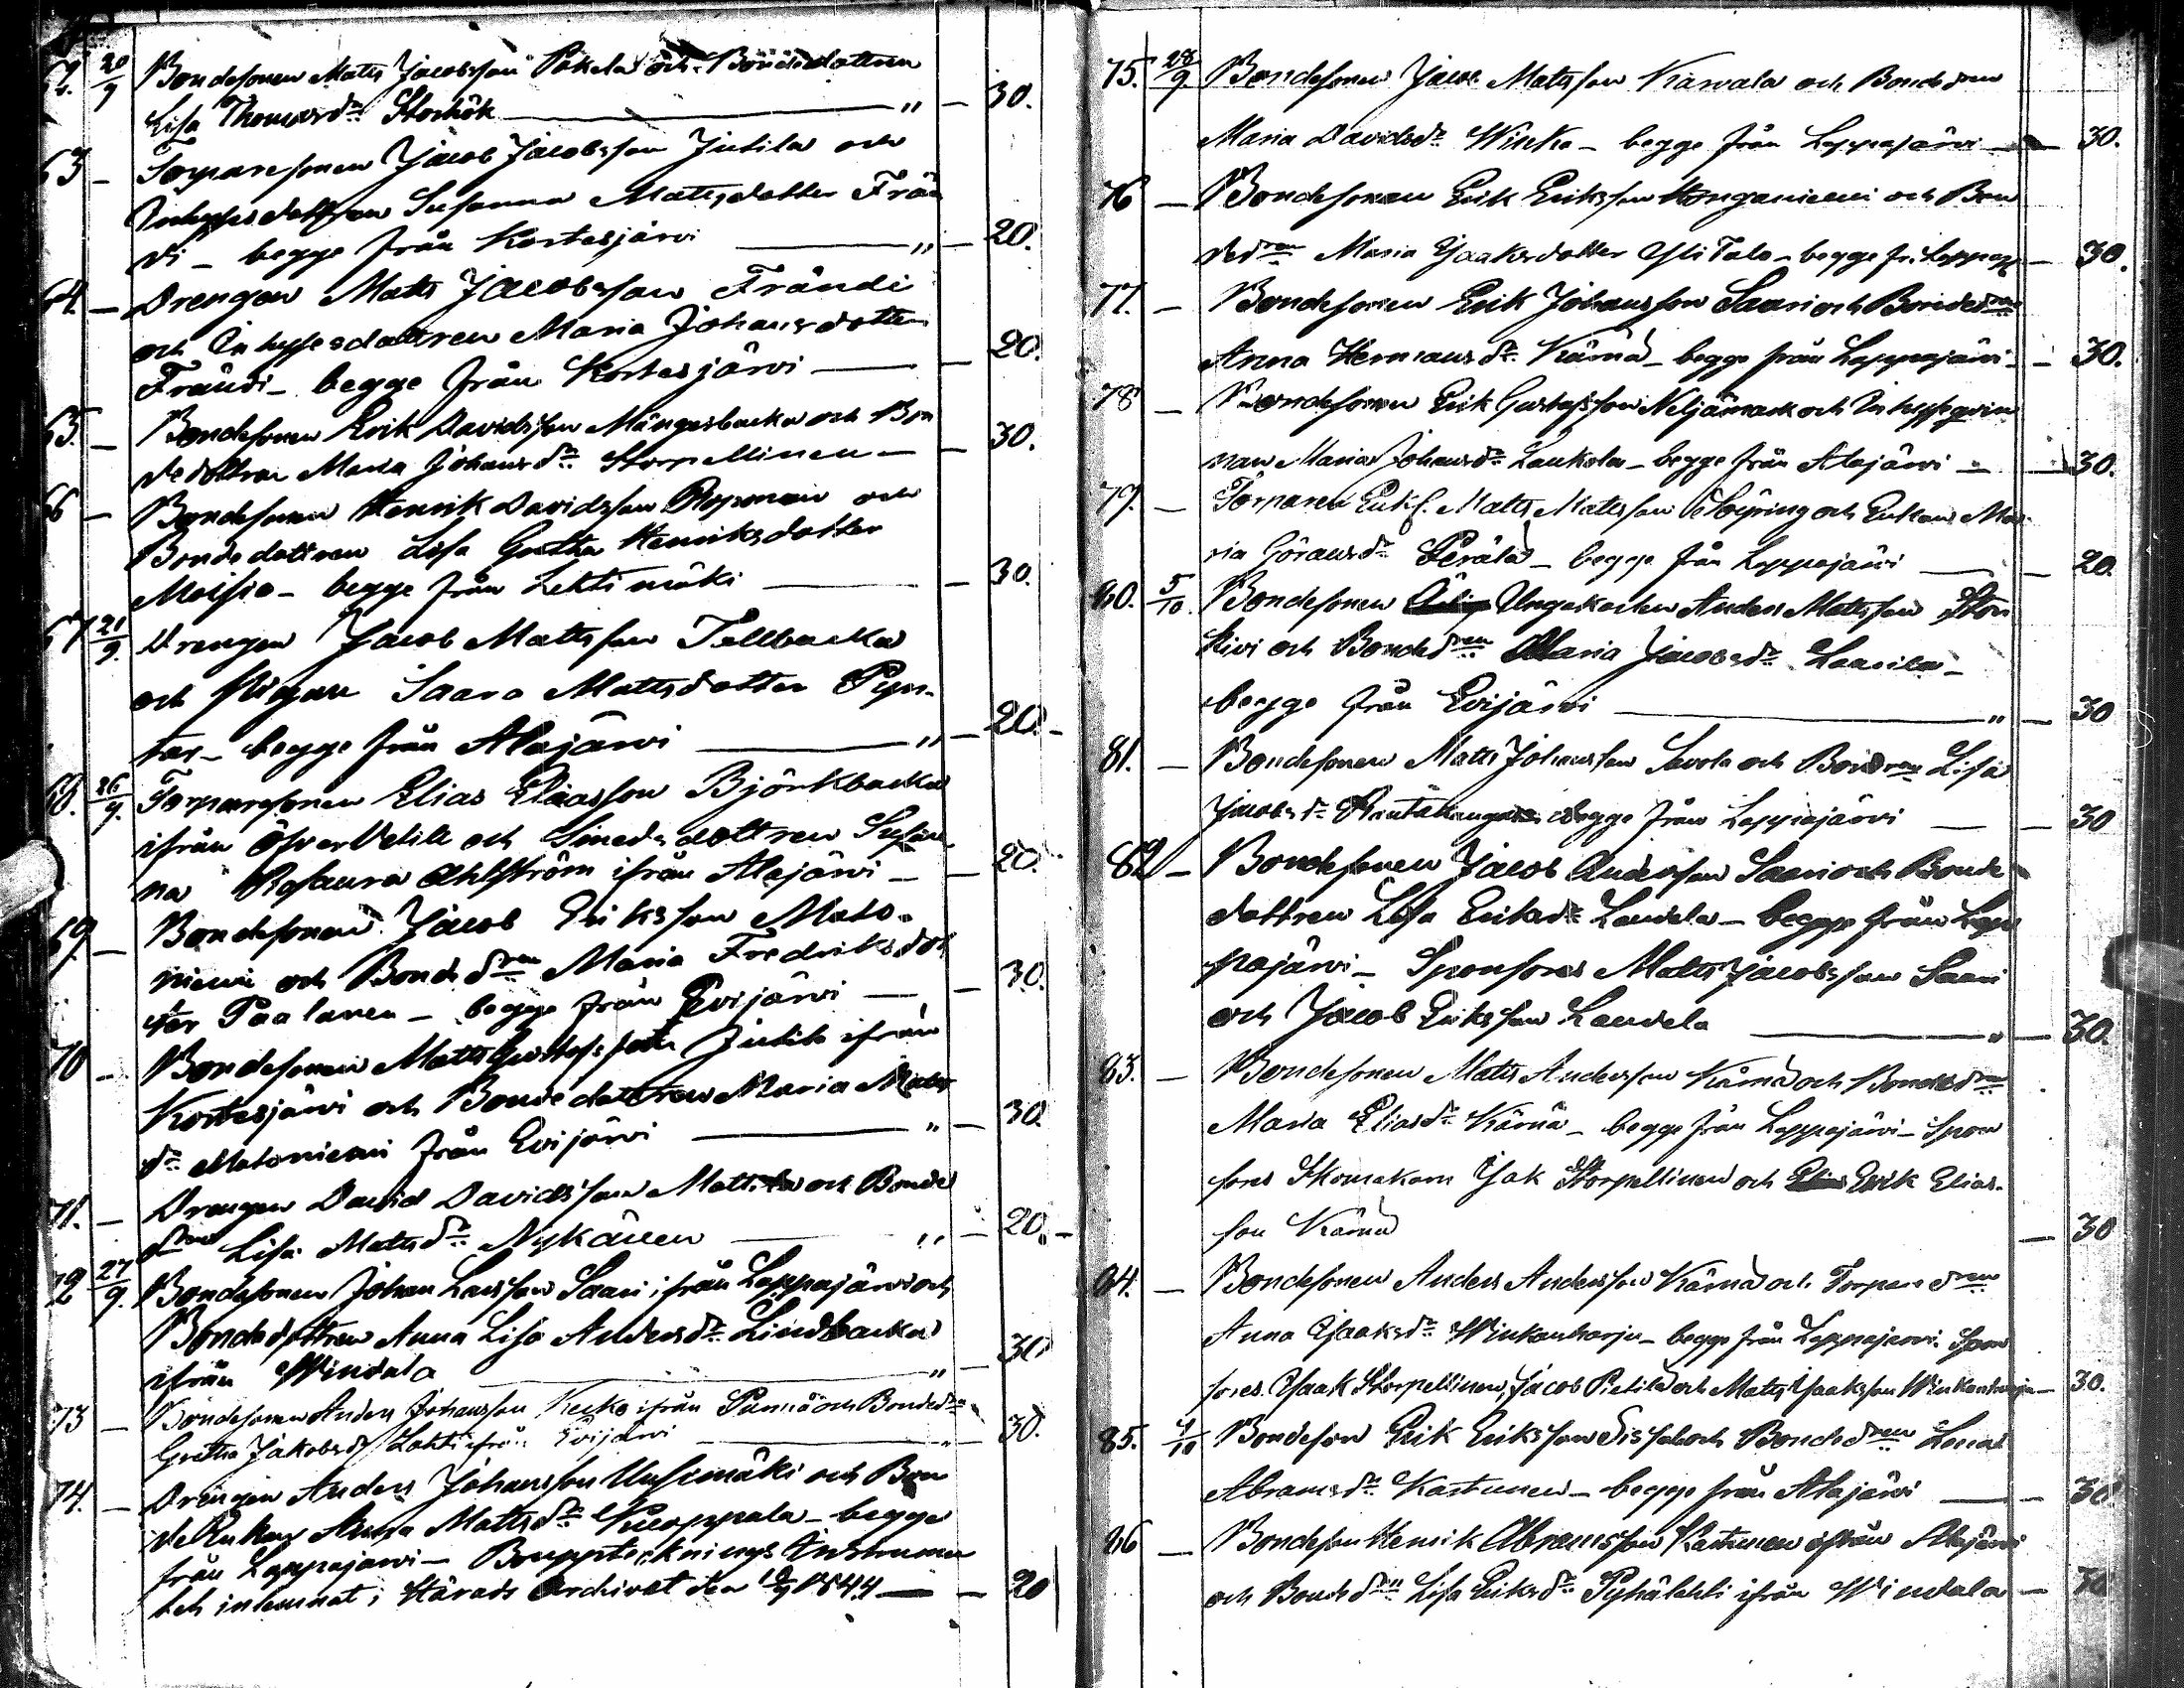 62. 20/9 Bondesonen Matts Jacobsson Pokela och Bondedottren
Lisa Thomasdr Storhök " — 30.
63 — Torparesonen Jacob Jacobsson Jutila och
Inhysesdottren Susanna Mattsdotter Frän
di — begge från Kortesjärvi " — 20.
64. — Drengen Matts Jacobsson Frändi
och Inhysesdottren Maria Johansdotter
Frändi — begge från Kortesjärvi — 20.
65. — Bondesonen Erik Davidsson Mångsbacka och Bon
dedottren Maria Johansdr Storpellinen — 30.
66 — Bondesonen Henrik Davidsson och
Bondedottren Lisa Gretha Henriksdotter
Moisio — begge från Lehtimäki — 30.
67 21/9. Drengen Jacob Mattsson Tallbacka
och Pigan Saara Mattsdotter
tar — begge från Alajärvi " — 20. —
68. 26/9. Torparesonen Elias Eliasson Björkbacka
ifrån Öfver Vetill och Smedsdottren Susan
na Rosaura Ahlström ifrån Alajärvi — 20.
69. — Bondesonen Jacob Eriksson Mato-
niemi och Bondedren Maria Fredriksdot
ter Paalanen — begge från Evijärvi — 30.
70 — Bondesonen Matts Gustafsson Jutila ifrån
Kortesjärvi och Bondedottren Maria Matts
dr Matoniemi från Evijärvi " — 30.
71. — Drengen David Davidsson och Bonde
dren Lisa Mattsdr Nykänen " — 20. —
72 27/9. Bondesonen Johan Larsson Saari ifrån Lappajärvi och
Bondedottren Anna Lisa Andersdr Lindbacka
ifrån Windala " — 30
73 — Bondesonen Anders Johansson ifrån och Bondedrn
Gretha Jakobsdr Lahti ifrån Evijärvi " — 30.
74. — Drengen Anders Johansson Uusimäki och Bon
deEnkan Anna Mattsdr — begge
från Lappajärvi — Bouppteknings Instrumen
tet inlemnat i Härads Archivet den 10/9 1844 — 20
75. 28/9. Bondesonen Jacob Mattsson Karvala och Bondedren
Maria Davidsdr Wiska — begge från Lappajärvi — 30.
76 — Bondesonen Erik Eriksson Honganiemi och Bon
dedren Maria Isaaksdotter YliTalo — begge fr. Lappajj — 30.
77. — Bondesonen Erik Johansson Saari och Bondedren
Anna Hermansdr Kärnä — begge från Lappajärvi — 30.
78 — Bondesonen Erik Gustafsson Neljänmark och Inhysesqvin
nan Maria Johansdr Laukola — begge från Alajärvi — 30.
79. — Torparen Enkl. Matts Mattsson och Enkan Ma
ria Göransdr Perälä — begge från Lappajärvi — 20.
80. 5/10. Bondesonen Ungakarlen Anders Mattsson Ston
kivi och Bondedren Maria Jacobsdr Laasila —
begge från Evijärvi " — 30
81. — Bondesonen Matts Johansson Savola och Bondren Lisa
Jacobsdr Rantakangas begge från Lappajärvi — 30
82 — Bondesonen Jacob Andersson Saari och Bonde
dottren Lisa Eriksdr Landela — begge från Lap
pajärvi — Sponsores Matts Jacobsson Saari
och Jacob Eriksson Landela " — 30.
83. — Bondesonen Matts Andersson Kärnä och Bondedren
Maria Eliasdr Kärnä — begge från Lappajärvi — Spon
sores Skomakarn Isak Storpellinen och Erik Elias-
son Kärnä — 30
84. — Bondesonen Anders Andersson Kärnä och Torparedren
Anna Isaaksdr Winkanharju — begge från Lappajärvi. Spon
sores Isaak Storpellinen, Jacob Pietilä och Matts Isaaksson Winkanharju — 30.
85. 4/10 Bondeson Erik Eriksson och Bondedren Lena
Abramsdr Kastunen — begge från Alajärvi — 30
86 — Bondeson Henrik Abramsson Kastunen ifrån Alajärvi
och Bondedren Lisa Eriksdr Pyhälahti ifrån Windala — 30